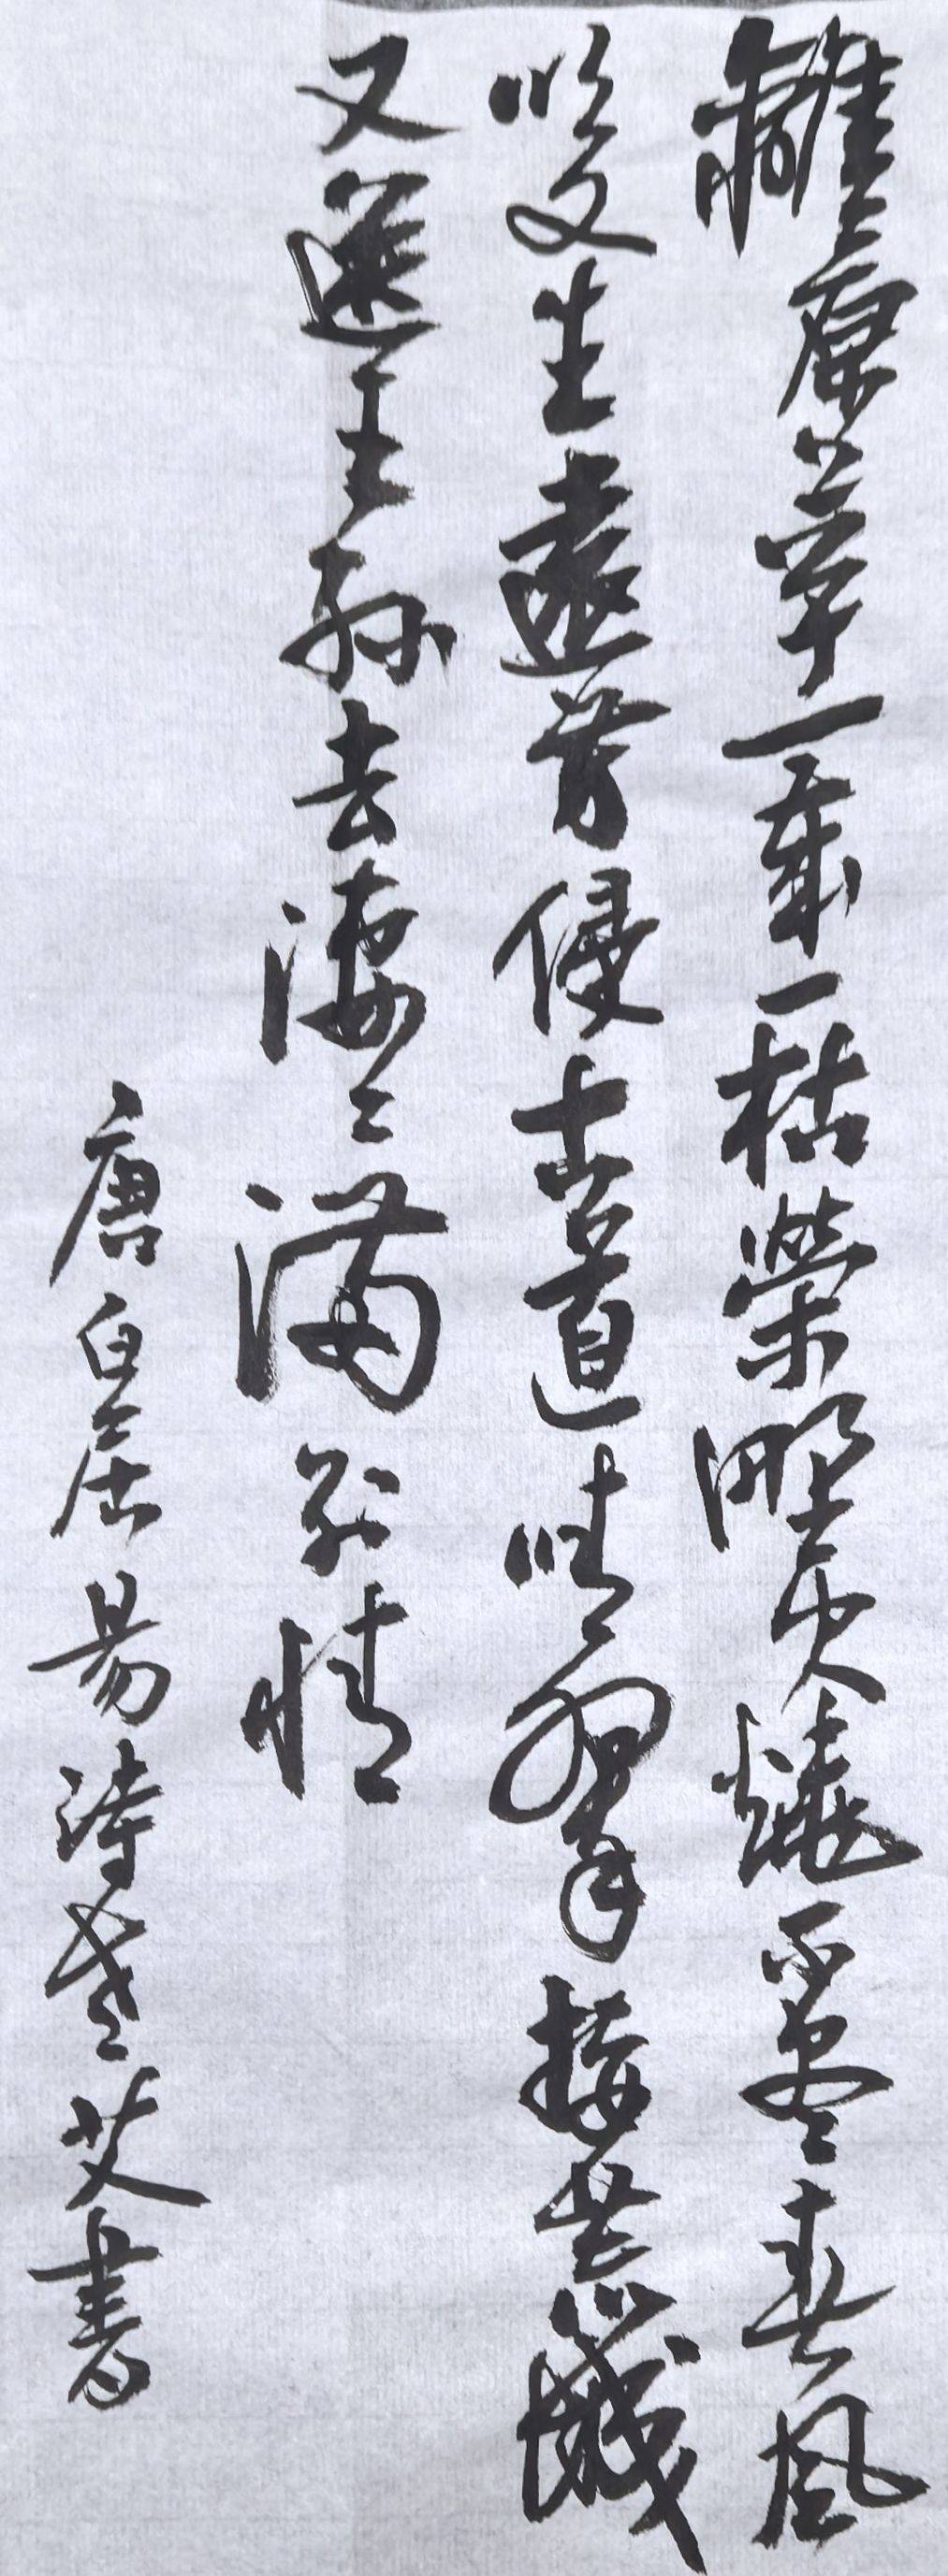 離〻原上草一歲一枯榮野火燒不盡春風
吹又生遠芳侵古道晴翠接荒城
又送王孫去淒〻滿別情
唐白居易詩老艾書